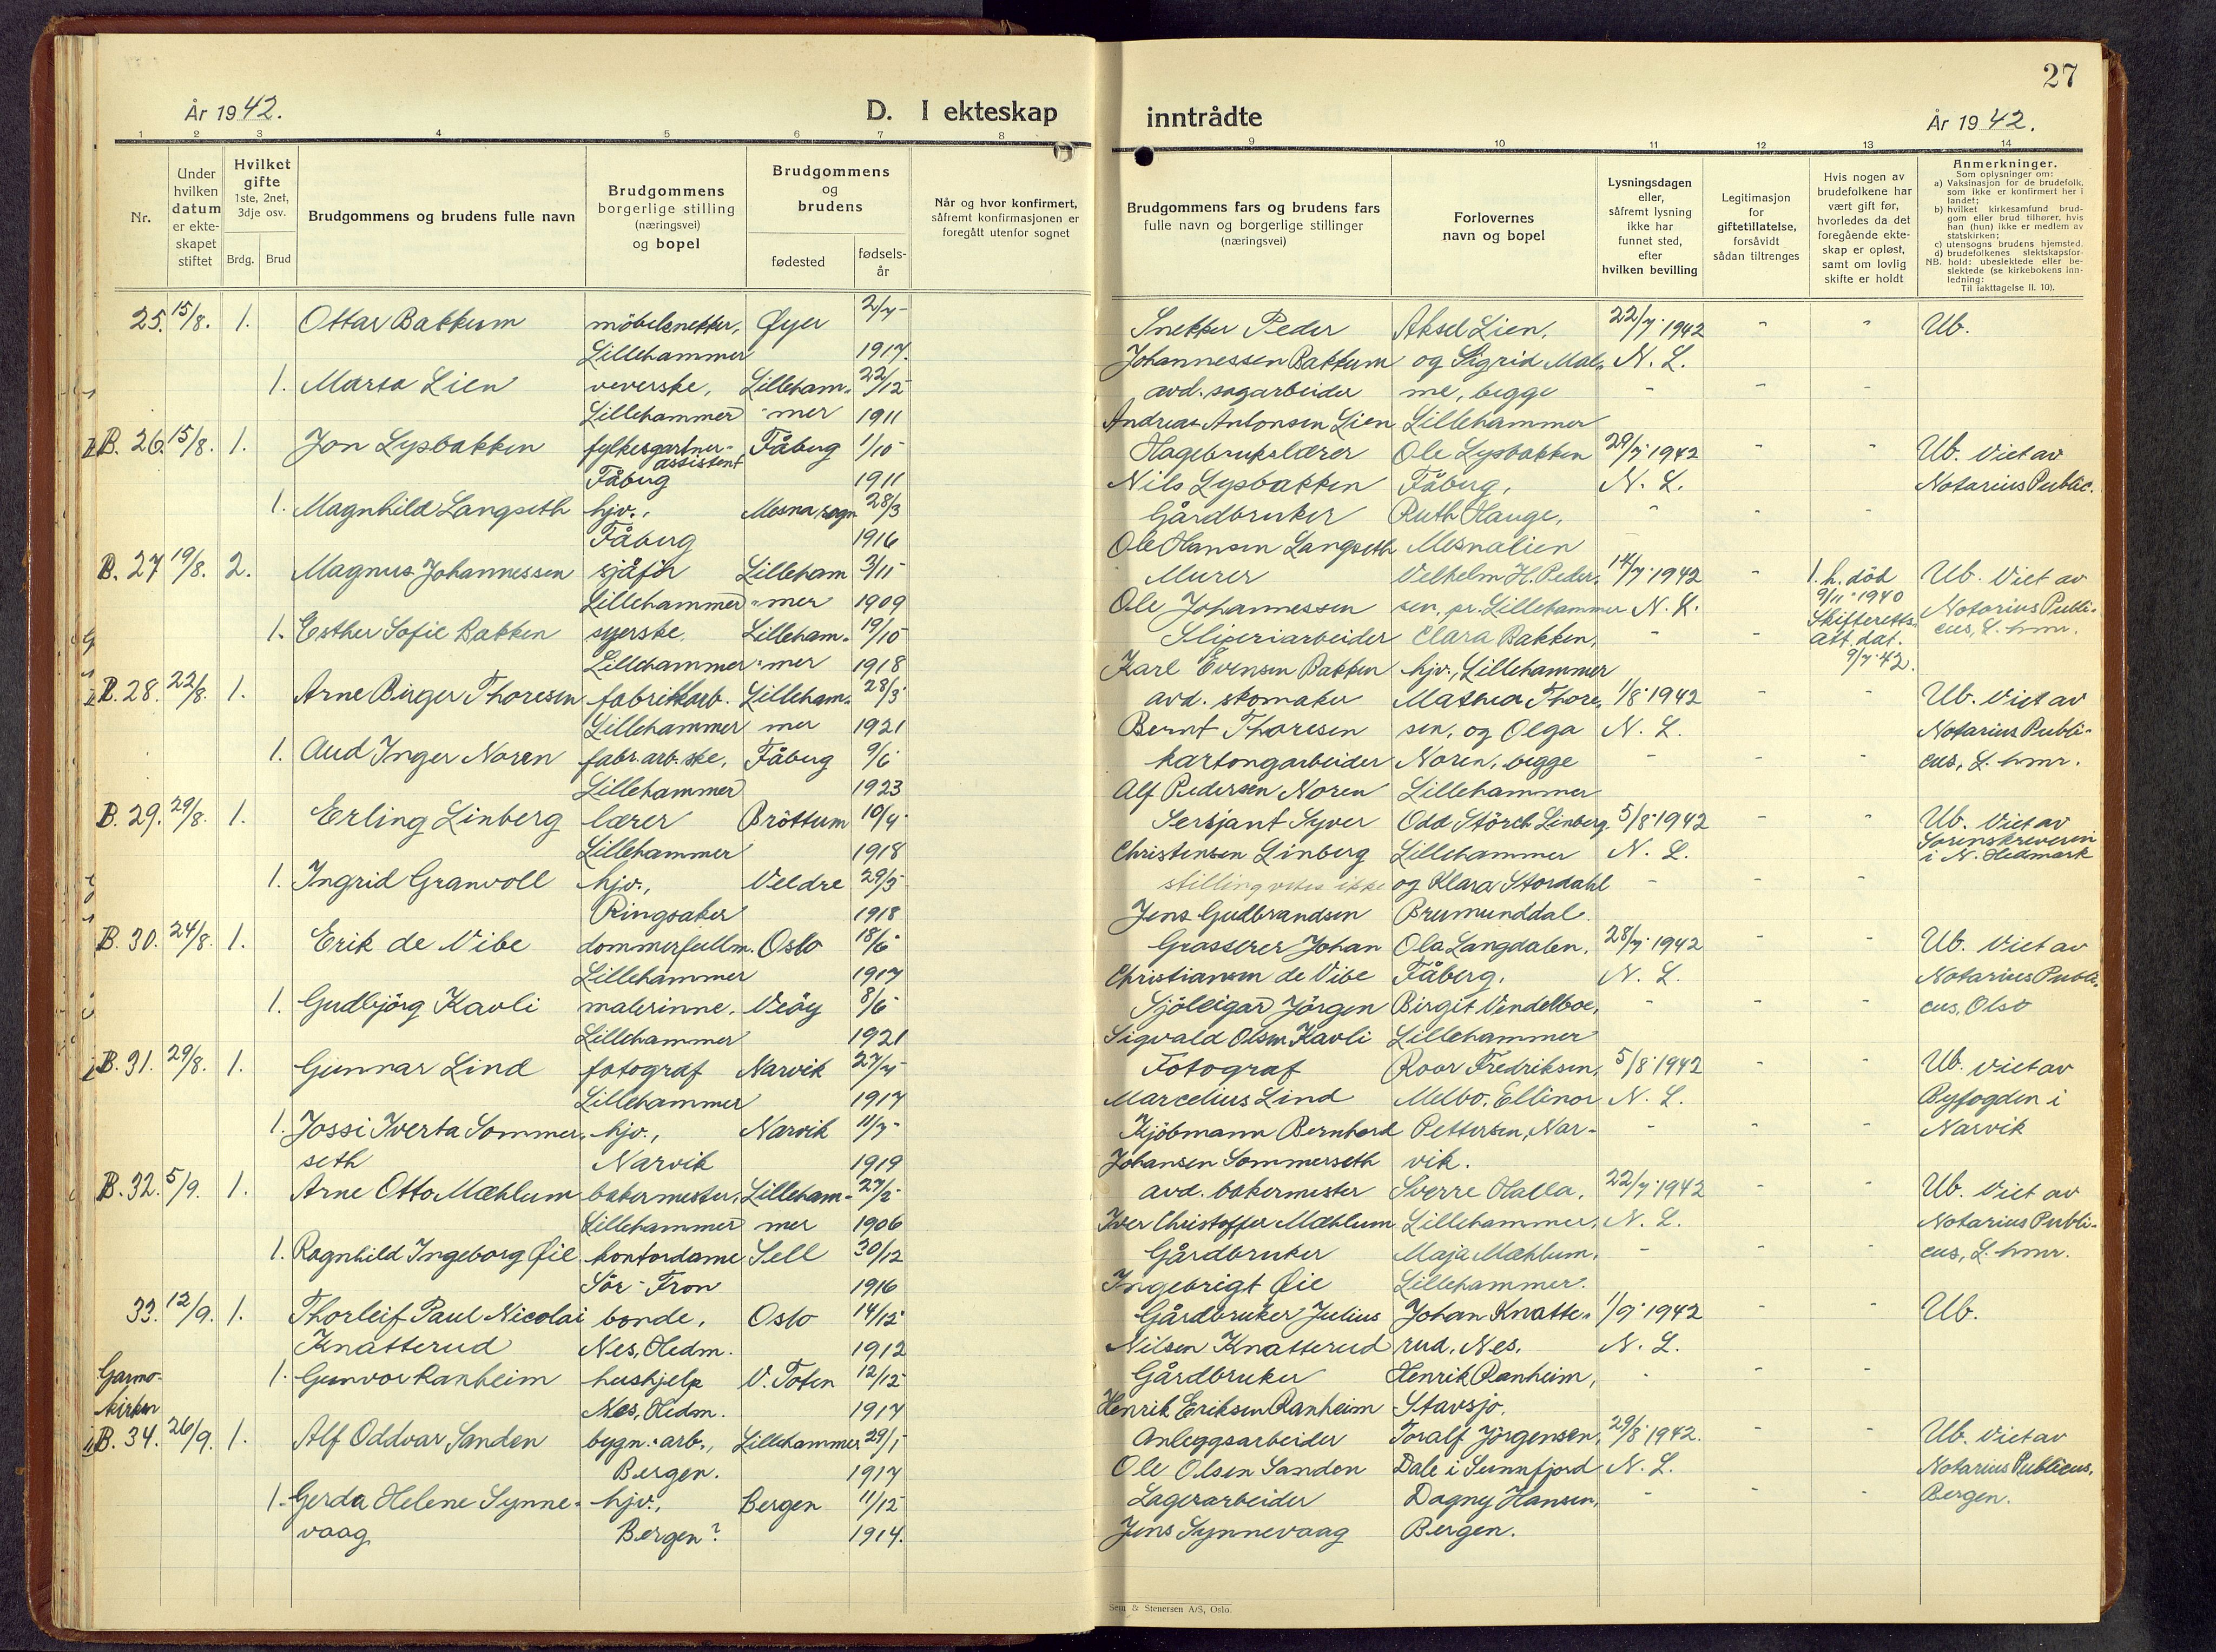 27
År 1942.
D. I ekteskap inntrådte
År 1942.
1 2 3 4 5 6 7 8 9 10 11 12 13 14
Nr.
Under hvilken datum er ekteskapet stiftet
Hvilket gifte 1ste, 2net, 3dje osv.
Brdg. Brud
Brudgommens og brudens fulle navn
Brudgommens borgerlige stilling (næringsvei) og bopel
Brudgommens og brudens
fødested
fødselsår
Når og hvor konfirmert, såfremt konfirmasjonen er foregått utenfor sognet
Brudgommens fars og brudens fars fulle navn og borgerlige stillinger (næringsvei)
Forlovernes navn og bopel
Lysningsdagen eller, såfremt lysning ikke har funnet sted, efter hvilken bevilling
Legitimasjon for giftetillatelse, forsåvidt sådan tiltrenges
Hvis nogen av brudefolkene har vært gift før, hvorledes da det foregående ekteskap er opløst, samt om lovlig skifte er holdt
Anmerkninger.
Som oplysninger om:
a) Vaksinasjon for de brudefolk, som ikke er konfirmert her i landet;
b) hvilket kirkesamfund brudgom eller brud tilhører, hvis han (hun) ikke er medlem av statskirken;
c) utensogns brudens hjemsted.
d) brudefolkenes slektskapsforhold: ubeslektede eller beslektede (se kirkebokens innledning:
NB.
Til iakttagelse II. 10).
25. 15/8. 1. Ottar Bakkum møbelsnekker, Øyer 2/7 Snekker Peder Aksel Lien, 22/7 1942 - - Ub.
Lillehammer 1917. Johannessen Bakkum og Sigrid Mal- N. L.
1. Marta Lien veverske, Lilleham- 22/12 avd. sagarbeider me, begge - - -
Lillehammer mer 1911 Andreas Antonsen Lien Lillehammer
B. 26. 15/8. 1. Jon Lysbakken fylkesgartner- Fåberg 1/10 Hagebrukslærer Ole Lysbakken 29/7 1942 - - Ub. Viet av
assistent
Fåberg 1911 Nils Lysbakken Fåberg, N. L. Notarius Public.
1. Magnhild Langseth hjv., Mesna sogn 28/3 Gårdbruker Ruth Hauge, - - -
Fåberg 1916 Ole Hansen Langseth Mesnalien
B. 27 19/8. 2. Magnus Johannessen sjåfør Lilleham 3/11 Murer Vilhelm H. Peder- 14/7 1942 - 1. h. död Ub. Viet av
Lillehammer mer 1909 Ole Johannessen sen, pr. Lillehammer N. L. 9/11 1940 Notarius Publi-
1. Esther Sofie Bakken syerske, Lilleham- 19/10 Sliperiarbeider Clara Bakken, - - Skifteretts- cus, L. hmr.
att. dat.
Lillehammer mer 1918 Karl Evensen Bakken hjv., Lillehammer 9/7 42.
B. 28. 22/8. 1. Arne Birger Thoresen fabrikkarb. Lilleham- 28/3 avd. skomaker Mathea Thore- 1/8 1942 - - Ub. Viet av
Lillehammer mer 1921 Bernt Thoresen sen, og Olga N. L. Notarius Publi-
1. Aud Inger Noren fabr. arb. ske, Fåberg 9/6 kartongarbeider Noren, begge - - - cus, L. hmr.
Lillehammer 1923 Alf Pedersen Noren Lillehammer
B. 29. 29/8. 1. Erling Linberg lærer Brøttum 10/4 Sersjant Syver Odd Störch Linberg 5/8 1942 - - Ub. Viet av
Lillehammer 1918 Christensen Linberg Lillehammer N. L. Sorenskriveren
i N. Hedmark
1. Ingrid Granvoll hjv., Veldre 29/5 stilling vites ikke og Klara Stordahl - - -
Ringsaker 1918 Jens Gudbrandsen Brumunddal.
B. 30. 24/8. 1. Erik de Vibe dommerfullm. Oslo 18/6 Grosserer Johan Ola Langdalen, 28/7 1942 - - Ub. Viet av
Lillehammer 1917 Christiansen de Vibe Fåberg, N. L. Notarius Publi-
1. Gudbjörg Kavli malerinne, Veöy 8/6 Sjöleigar Jörgen Birgit Vindelboe, - - - cus, Olso
Lillehammer 1921 Sigvald Olsen Kavli Lillehammer
B. 31. 29/8. 1. Gunnar Lind fotograf Narvik 27/4 Fotograf Roar Fredriksen, 5/8 1942 - - Ub. viet av
Lillehammer 1917 Marcelius Lind Melbo, Ellinor N. L. Byfogden i
1. Jossi Iverta Sommer- hjv., Narvik 11/7 Kjöbmann Bernhard Pettersen, Nar- - - - Narvik
seth Narvik 1919 Johansen Sommerseth vik.
B. 32. 5/9. 1. Arne Otto Mæhlum bakermester, Lilleham- 27/2 avd. bakermester Sverre Halla, 22/7 1942 - - Ub. Viet av
Lillehammer mer 1906 Iver Christoffer Mæhlum Lillehammer, N. L. Notarius Publi-
1. Ragnhild Ingeborg Øie kontordame Sell 30/12 Gårdbruker Maja Mæhlum, - - - cus, L. hmr.
Sör-Fron 1916 Ingebrigt Øie Lillehammer.
33. 12/9. 1. Thorleif Paul Nicolai bonde, Oslo 14/12 Gårdbruker Julius Johan Knatte- 1/9 1942 - - Ub.
Knatterud Nes, Hedm. 1912 Nilsen Knatterud rud, Nes, N. L.
Garmo- 1. Gunvor Ranheim hushjelp V. Toten 12/12 Gårdbruker Henrik Ranheim, - - -
kirken Nes, Hedm. 1917 Henrik Eriksen Ranheim Stavsjø.
B. 34. 26/9. 1. Alf Oddvar Sanden bygn. arb., Lillehammer 29/1 Anleggsarbeider Toralf Jørgensen, 29/8 1942. - - Ub. Viet av
Bergen. 1917 Ole Olsen Sanden Dale i Sunnfjord N. L. Notarius Publicus,
1. Gerda Helene Synne- hjv., Bergen 11/12 Lagerarbeider Dagny Hansen, - - - Bergen.
vaag Bergen? 1914. Jens Synnevaag Bergen.
Sem & Stenersen A/S, Oslo.